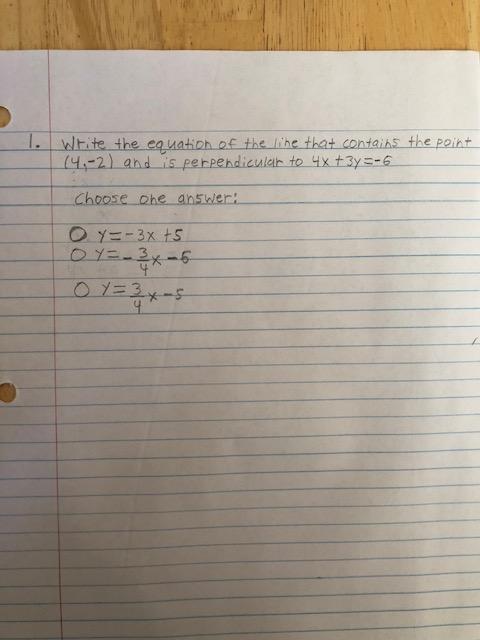 1. Write the equation of the line that contains the point
(4,-2) and is perpendicular to 4x+3y=-6
Choose one answer:
O y=-3x+5
O y=-3/4x-5
O y=3/4x-5